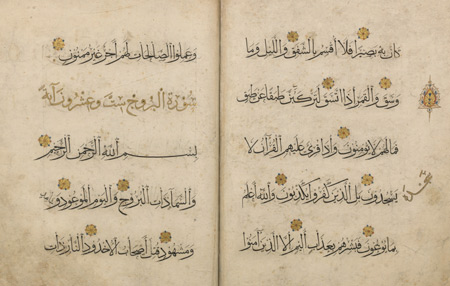 كان به بصيرا فلا اقسم بالشفق والليل وما
وسق والقمر اذا اتسق لتركبن طبقا عن طبق
فما لهم لا يؤمنون واذا قرئ عليهم القرآن لا
يسجدون بل الذين كفروا يكذبون والله اعلم
سجدة
بما يوعون فبشرهم بعذاب اليم الا الذين آمنوا
وعملوا الصالحات لهم اجر غير ممنون
سورة البروج ست وعشرون آية
بسم الله الرحمن الرحيم
والسماء ذات البروج واليوم الموعود وشاهد
ومشهود قتل اصحاب الاخدود النار ذات